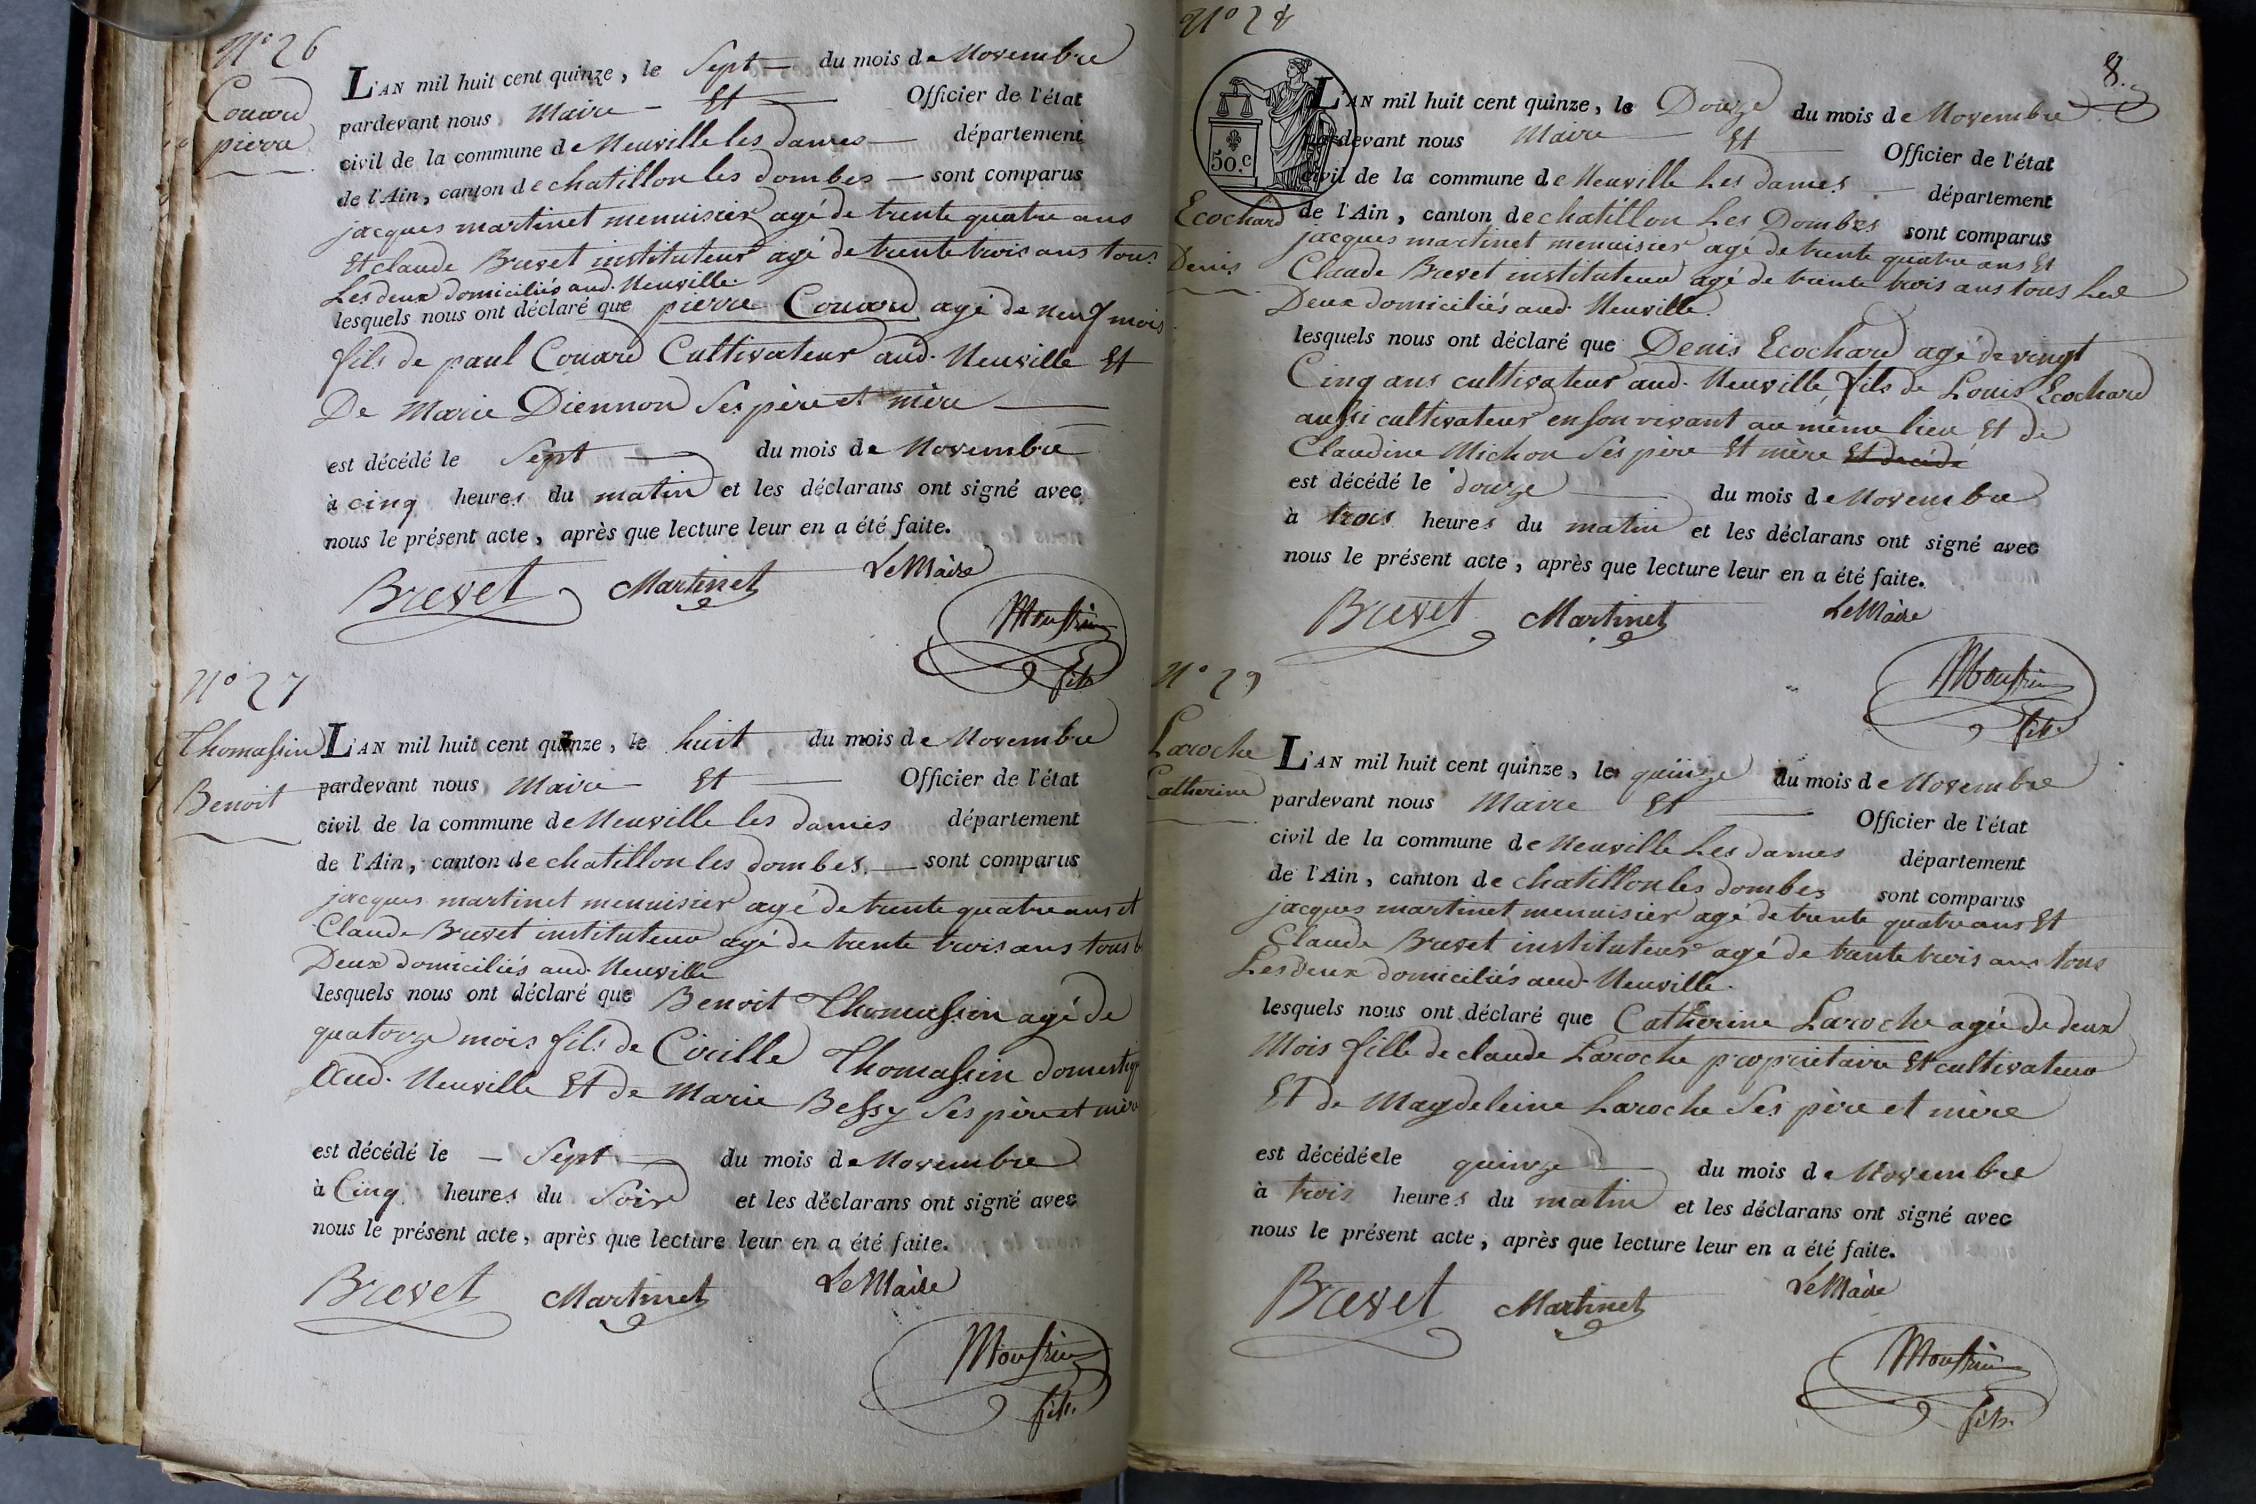 N° 26
Couard
pierre
L'AN mil huit cent quinze, le Sept du mois de Novembre
pardevant nous Maire Et Officier de l'état
civil de la commune de Neuville les dames département
de l'Ain, canton de chatillon les dombes sont comparus
jacques martinet menuisier agé de trente quatre ans
Et claude Brevet instituteur agé de trente trois ans tous
Les deux domiciliés aud. Neuville.
lesquels nous ont déclaré que pierre Couard agé de neuf mois
fils de paul Couard Cultivateur aud. Neuville Et
De Marie Diennon Ses père et mère
est décédé le Sept du mois de Novembre
à cinq heures du matin et les déclarans ont signé avec
nous le présent acte, après que lecture leur en a été faite.
Brevet Martinet LeMaire
fils
N° 27
Thomassin
Benoit
L'AN mil huit cent quinze, le huit du mois de Novembre
pardevant nous Maire Et Officier de l'état
civil de la commune de Neuville les dames département
de l'Ain, canton de chatillon les dombes. sont comparus
jacques martinet menuisier agé de trente quatre ans et
Claude Brevet instituteur agé de trente trois ans tous
Deux domiciliés aud. Neuville
lesquels nous ont déclaré que Benoit Thomassin agé de
quatorze mois fils de Cirille Thomassin
Aud. Neuville Et de Marie Bessy Ses père et mère
est décédé le Sept du mois de Novembre
à Cinq heures du Soir et les déclarans ont signé avec
nous le présent acte, après que lecture leur en a été faite.
Brevet Martinet LeMaire
fils.
N° 28
8.
50.c
Ecochard
Denis
L'AN mil huit cent quinze, le Douze du mois de Novembre
pardevant nous Maire Et Officier de l'état
civil de la commune de Neuville Les dames département
de l'Ain, canton de chatillon Les Dombes sont comparus
jacques martinet menuisier agé de trente quatre ans Et
Claude Brevet instituteur agé de trente trois ans tous Les
Deux domiciliés aud. Neuville.
lesquels nous ont déclaré que Denis Ecochard agé de vingt
Cinq ans cultivateur aud. Neuville, fils de Louis Ecochard
aussi cultivateur en son vivant au même lieu Et de
Claudine Michon Ses père Et mère Et décédé
est décédé le douze du mois de Novembre
à trois heures du matin et les déclarans ont signé avec
nous le présent acte, après que lecture leur en a été faite.
Brevet Martinet LeMaire
fils.
N° 29
Laroche
Catherine
L'AN mil huit cent quinze, le quinze du mois de Novembre
pardevant nous Maire Et Officier de l'état
civil de la commune de Neuville Les dames département
de l'Ain, canton de chatillon les dombes sont comparus
jacques martinet menuisier agé de trente quatre ans Et
Claude Brevet instituteur agé de trente trois ans tous
Les deux domiciliés aud. Neuville.
lesquels nous ont déclaré que Catherine Laroche agée de deux
Mois fille de claude Laroche propriétaire Et cultivateur
Et de Magdeleine Laroche Ses père et mère
est décédée le quinze du mois de Novembre
à trois heures du matin et les déclarans ont signé avec
nous le présent acte, après que lecture leur en a été faite.
Brevet Martinet LeMaire
fils.